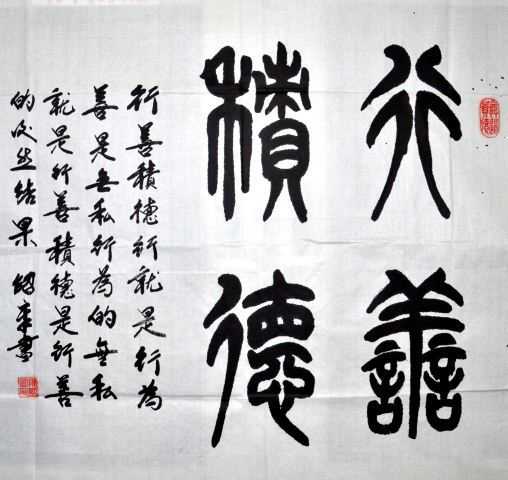 行善
積德
行善積德行就是行為
善是無私行為的無私
就是行善積德是行善
的必然结果 書